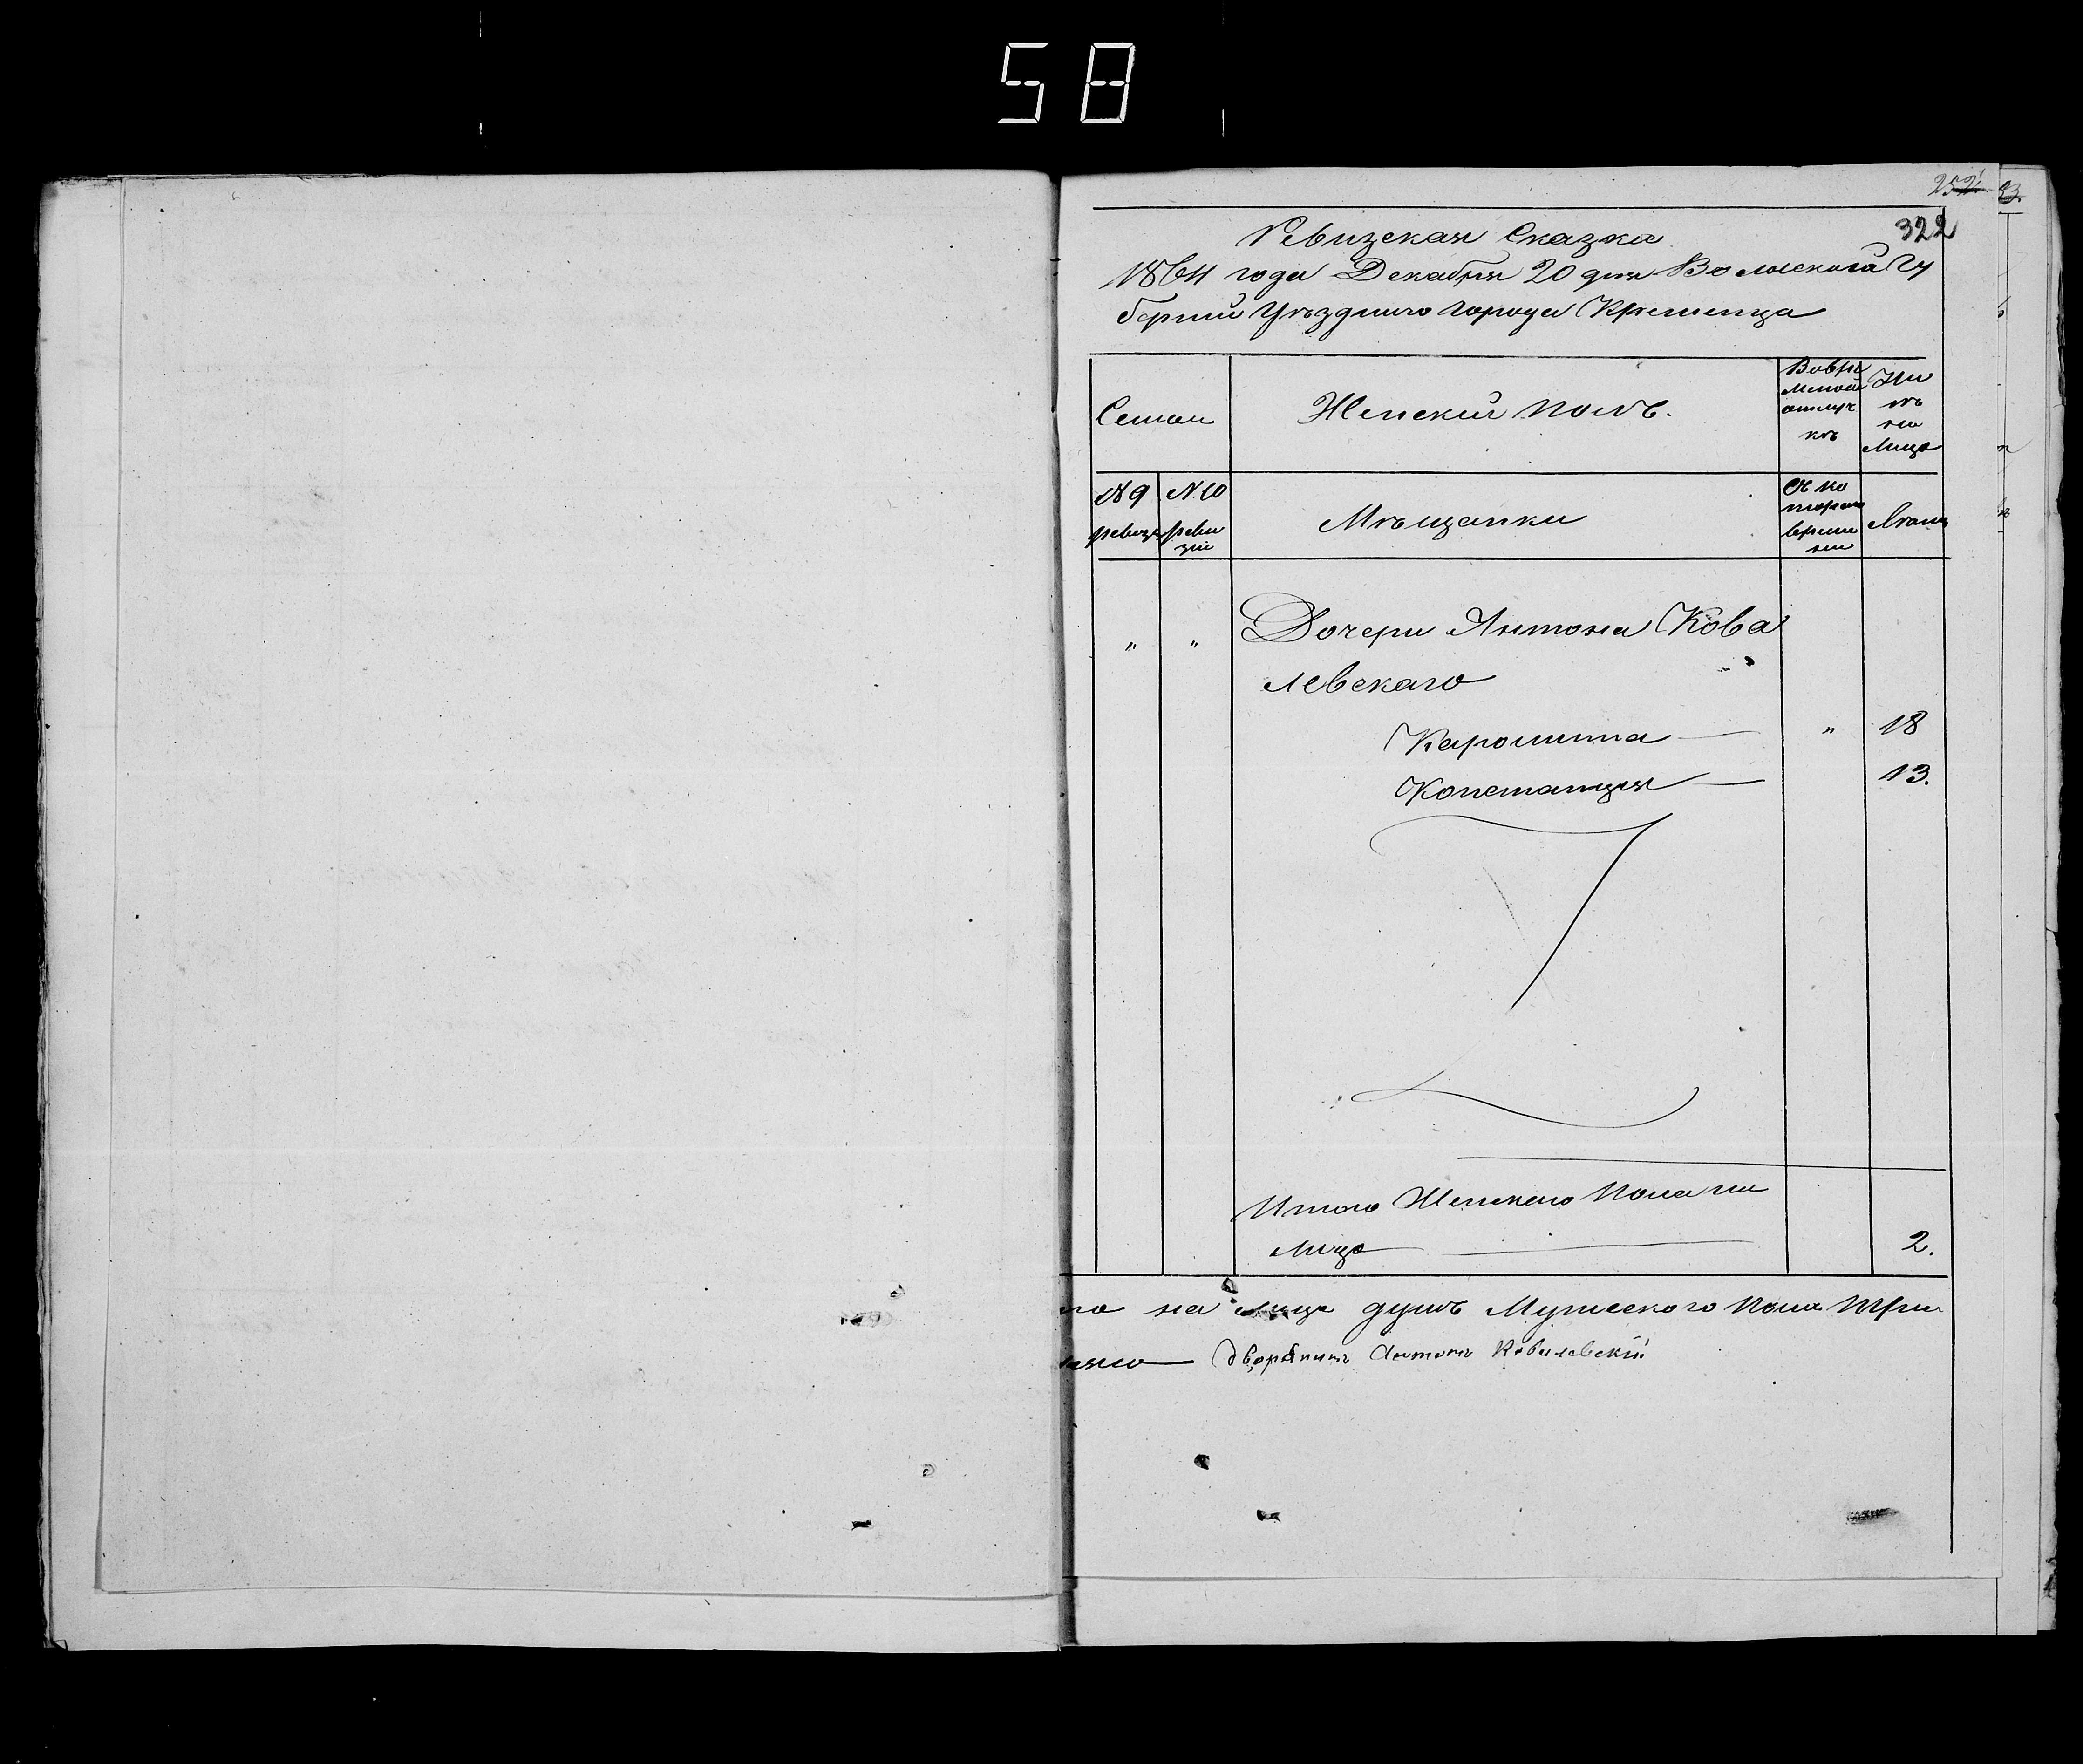 58
322
Ревизская Сказка
1864 года Декабря 20 дня Волынской Гу
берніи Уѣзднаго города Кременца
Семьи
Женскій полъ.
Во вре
менной
отлуч
кѣ
На
лицо
№ 9
ревизіи
№ 10
реви
зіи
Мѣщанки
Съ ко
тораго
време
ни
Лѣта
" " Дочери Антона Кова
левскаго
Каролина — " 18
Констанція — 13.
Итого Женскаго пола на
лицо — 2.
на лицо душъ Мужескаго пола три
Дворянинъ Антонъ Ковалевскій